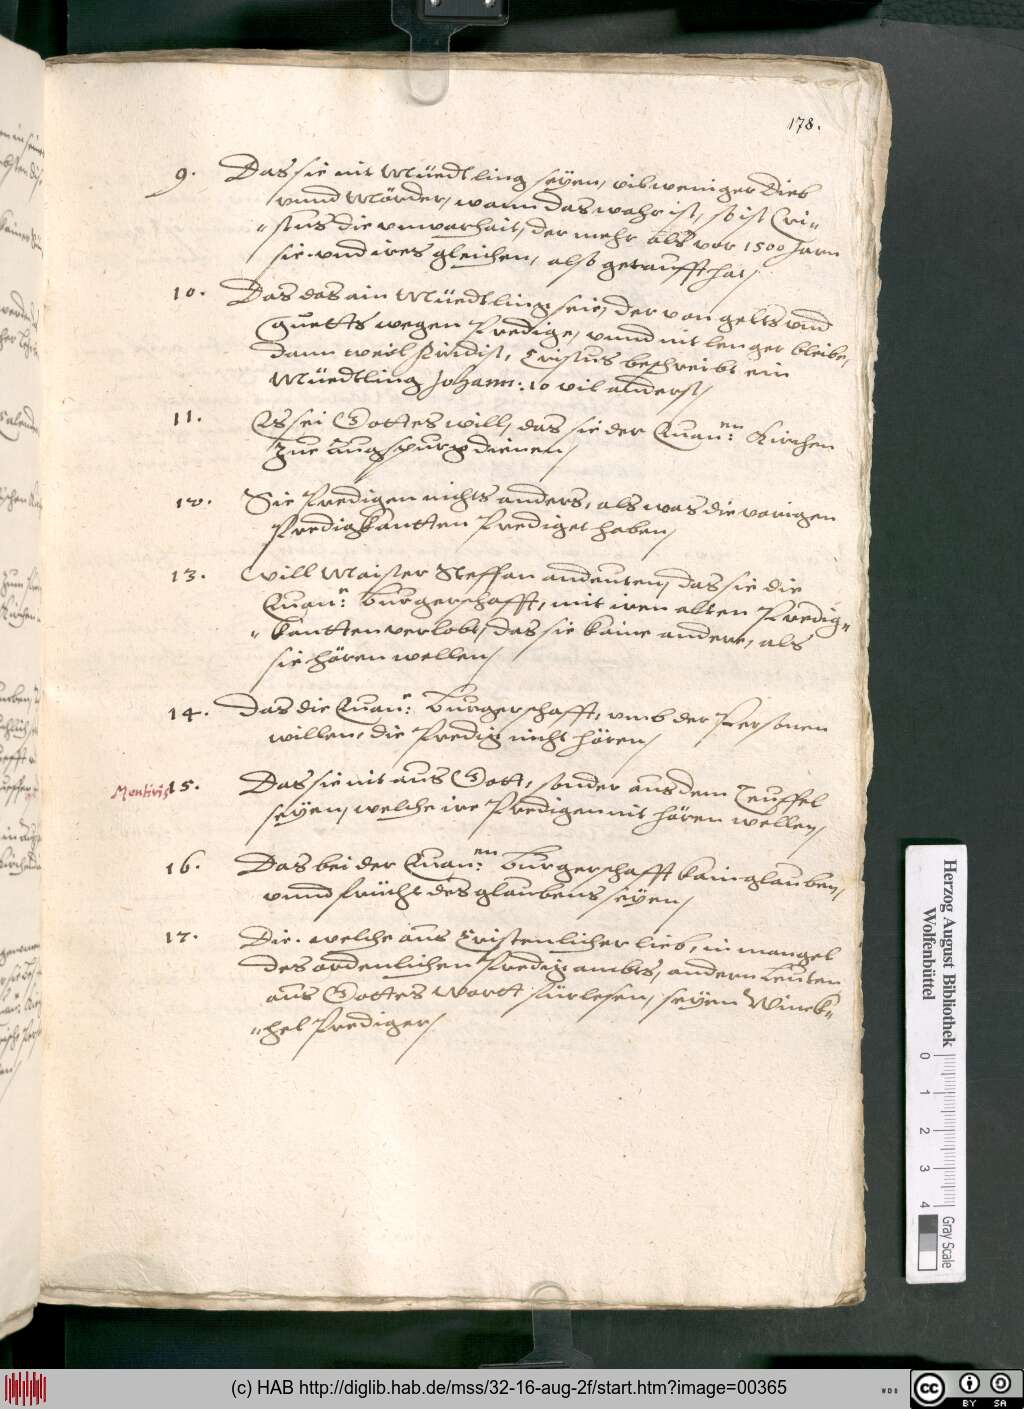 178.
9. Das sie nit Müedtling seyen, vil weniger Dieb
vnnd Mörder, wann das wahr ist, so ist Cri-
stus die vnwarhait, der mehr als vor 1500 Jarn
sie vnd ires gleichen, also getaufft hat,
10. Das das ain Müedtling seie, der von gelts vnd
guetts wegen Predige, vnnd nit lenger bleibe,
dann weil Kirch ist, Cristus beschreibt ein
Müedtling Johann: 10 vil anderst,
11. Es sei Gottes will, das sie der Euan:en Kirchen
zue Augspurg dienen,
12. Sie Predigen nichts anders, als was die vorigen
Predigkantten Prediget haben,
13. Will Maister Steffan andeuten, das sie die
Euan: burgerschafft, mit iren alten Predig-
kantten verlobt, das sie kaine andere, als
sie hören wellen,
14. Das die Euan: burgerschafft, vmb der Personen
willen, die Predig nicht hören,
Mentiris
15. Das sie nit aus Gott, sonder aus dem Teuffel
seyen, welche ire Predigen nit hören wellen,
16. Das bei der Euan:en burgerschafft kain glauben,
vnnd frücht des glaubens seyen,
17. Die, welche aus Cristenlicher lieb, in mangel
des ordenlichen Predig ambts, andern Leuten
aus Gottes Wortt fürlesen, seyen Winck-
hel Prediger,
Herzog August Bibliothek
Wolfenbüttel
0 1 2 3 4
Gray Scale
(c) HAB http://diglib.hab.de/mss/32-16-aug-2f/start.htm?image=00365
WDB
cc BY SA